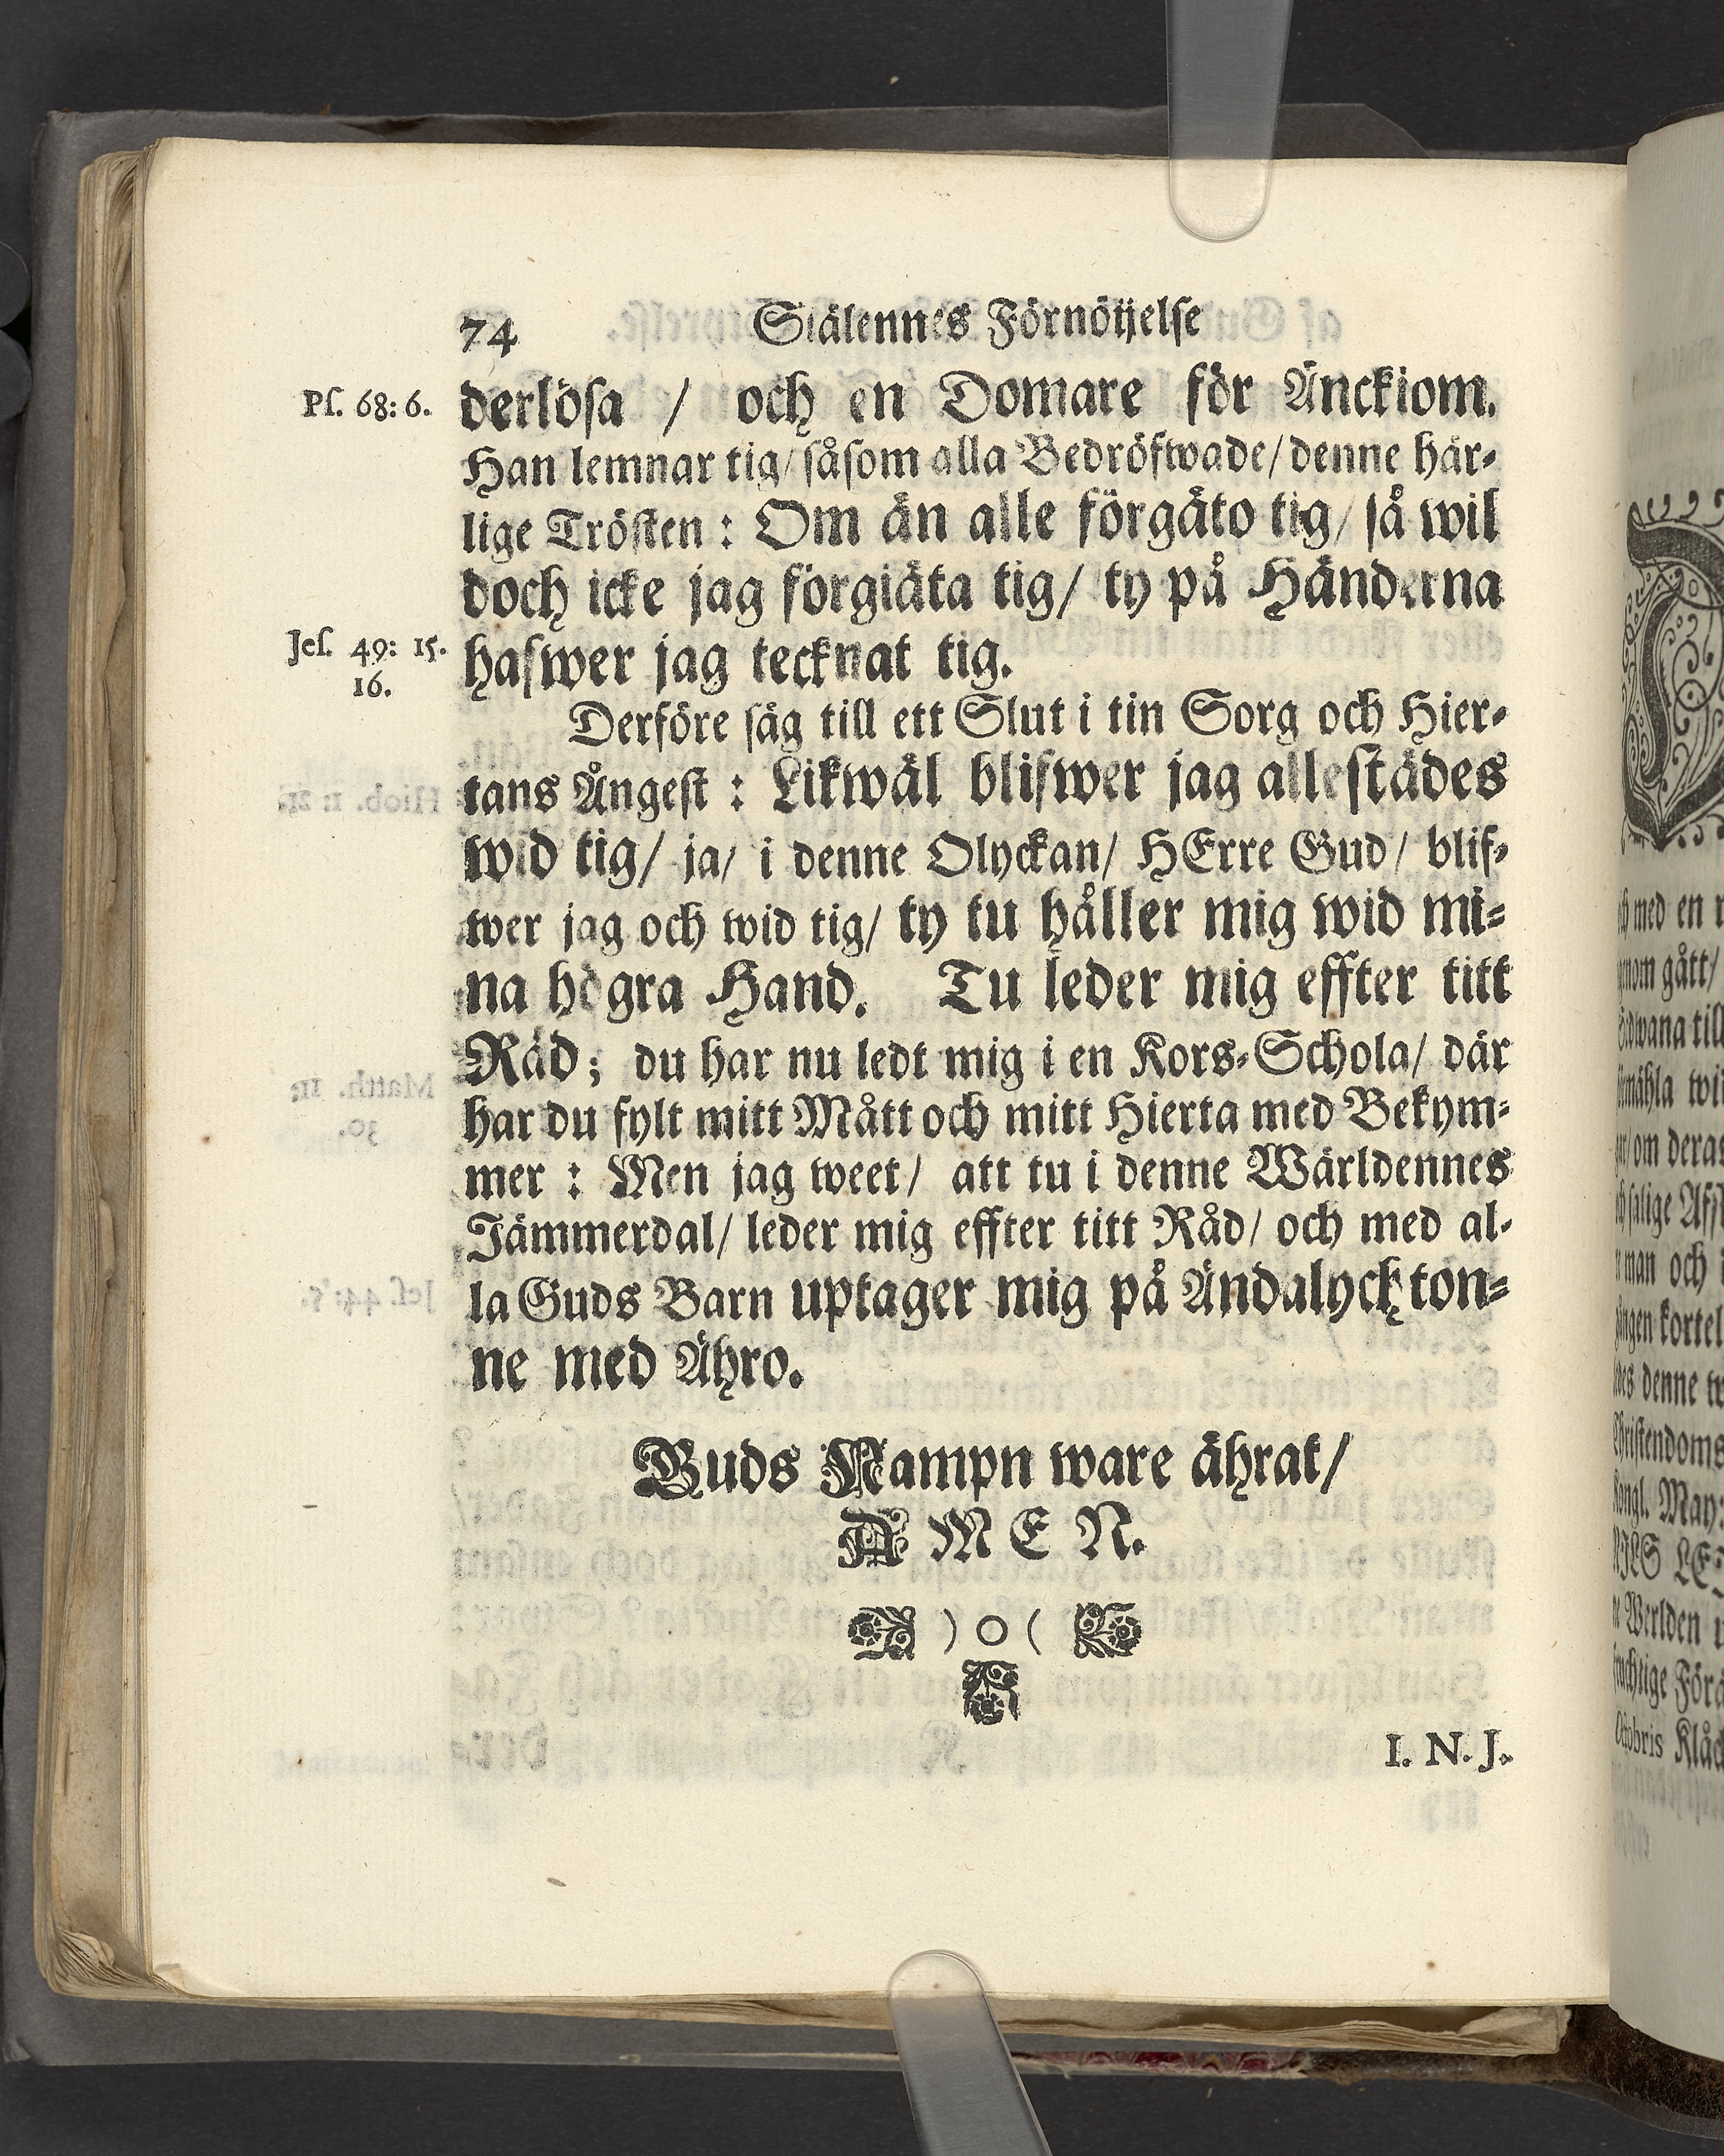 74 Siälennes Förnöijelse
Ps. 68: 6. derlösa / och en Domare för Änckiom.
Han lemnar tig/ såsom alla Bedröfwade/ denne här-
lige Trösten : Om än alle förgäto tig/ så wil
doch icke jag förgiäta tig/ ty på Händerna
Jes. 49: 15. hafwer jag tecknat tig.
16.
Derföre säg till ett Slut i tin Sorg och Hier-
tans Ångest : Likwäl blifwer jag allestädes
wid tig/ ja/ i denne Olyckan/ HErre Gud/ blif-
wer jag och wid tig/ ty tu håller mig wid mi-
na högra Hand. Tu leder mig effter titt
Råd; du har nu ledt mig i en Kors-Schola/ där
har du fylt mitt Mått och mitt Hierta med Bekym-
mer : Men jag weet/ att tu i denne Wärldennes
Jämmerdal/ leder mig effter titt Råd/ och med al-
la Guds Barn uptager mig på Ändalychton-
ne med Ähro.
Guds Nampn ware ährat/
A M E N.
) O (
I. N. J.
med en
gått/
till
wil
/om deras
man och
kortel
denne
Christendoms
Kongl. May:
NILS
Werlden